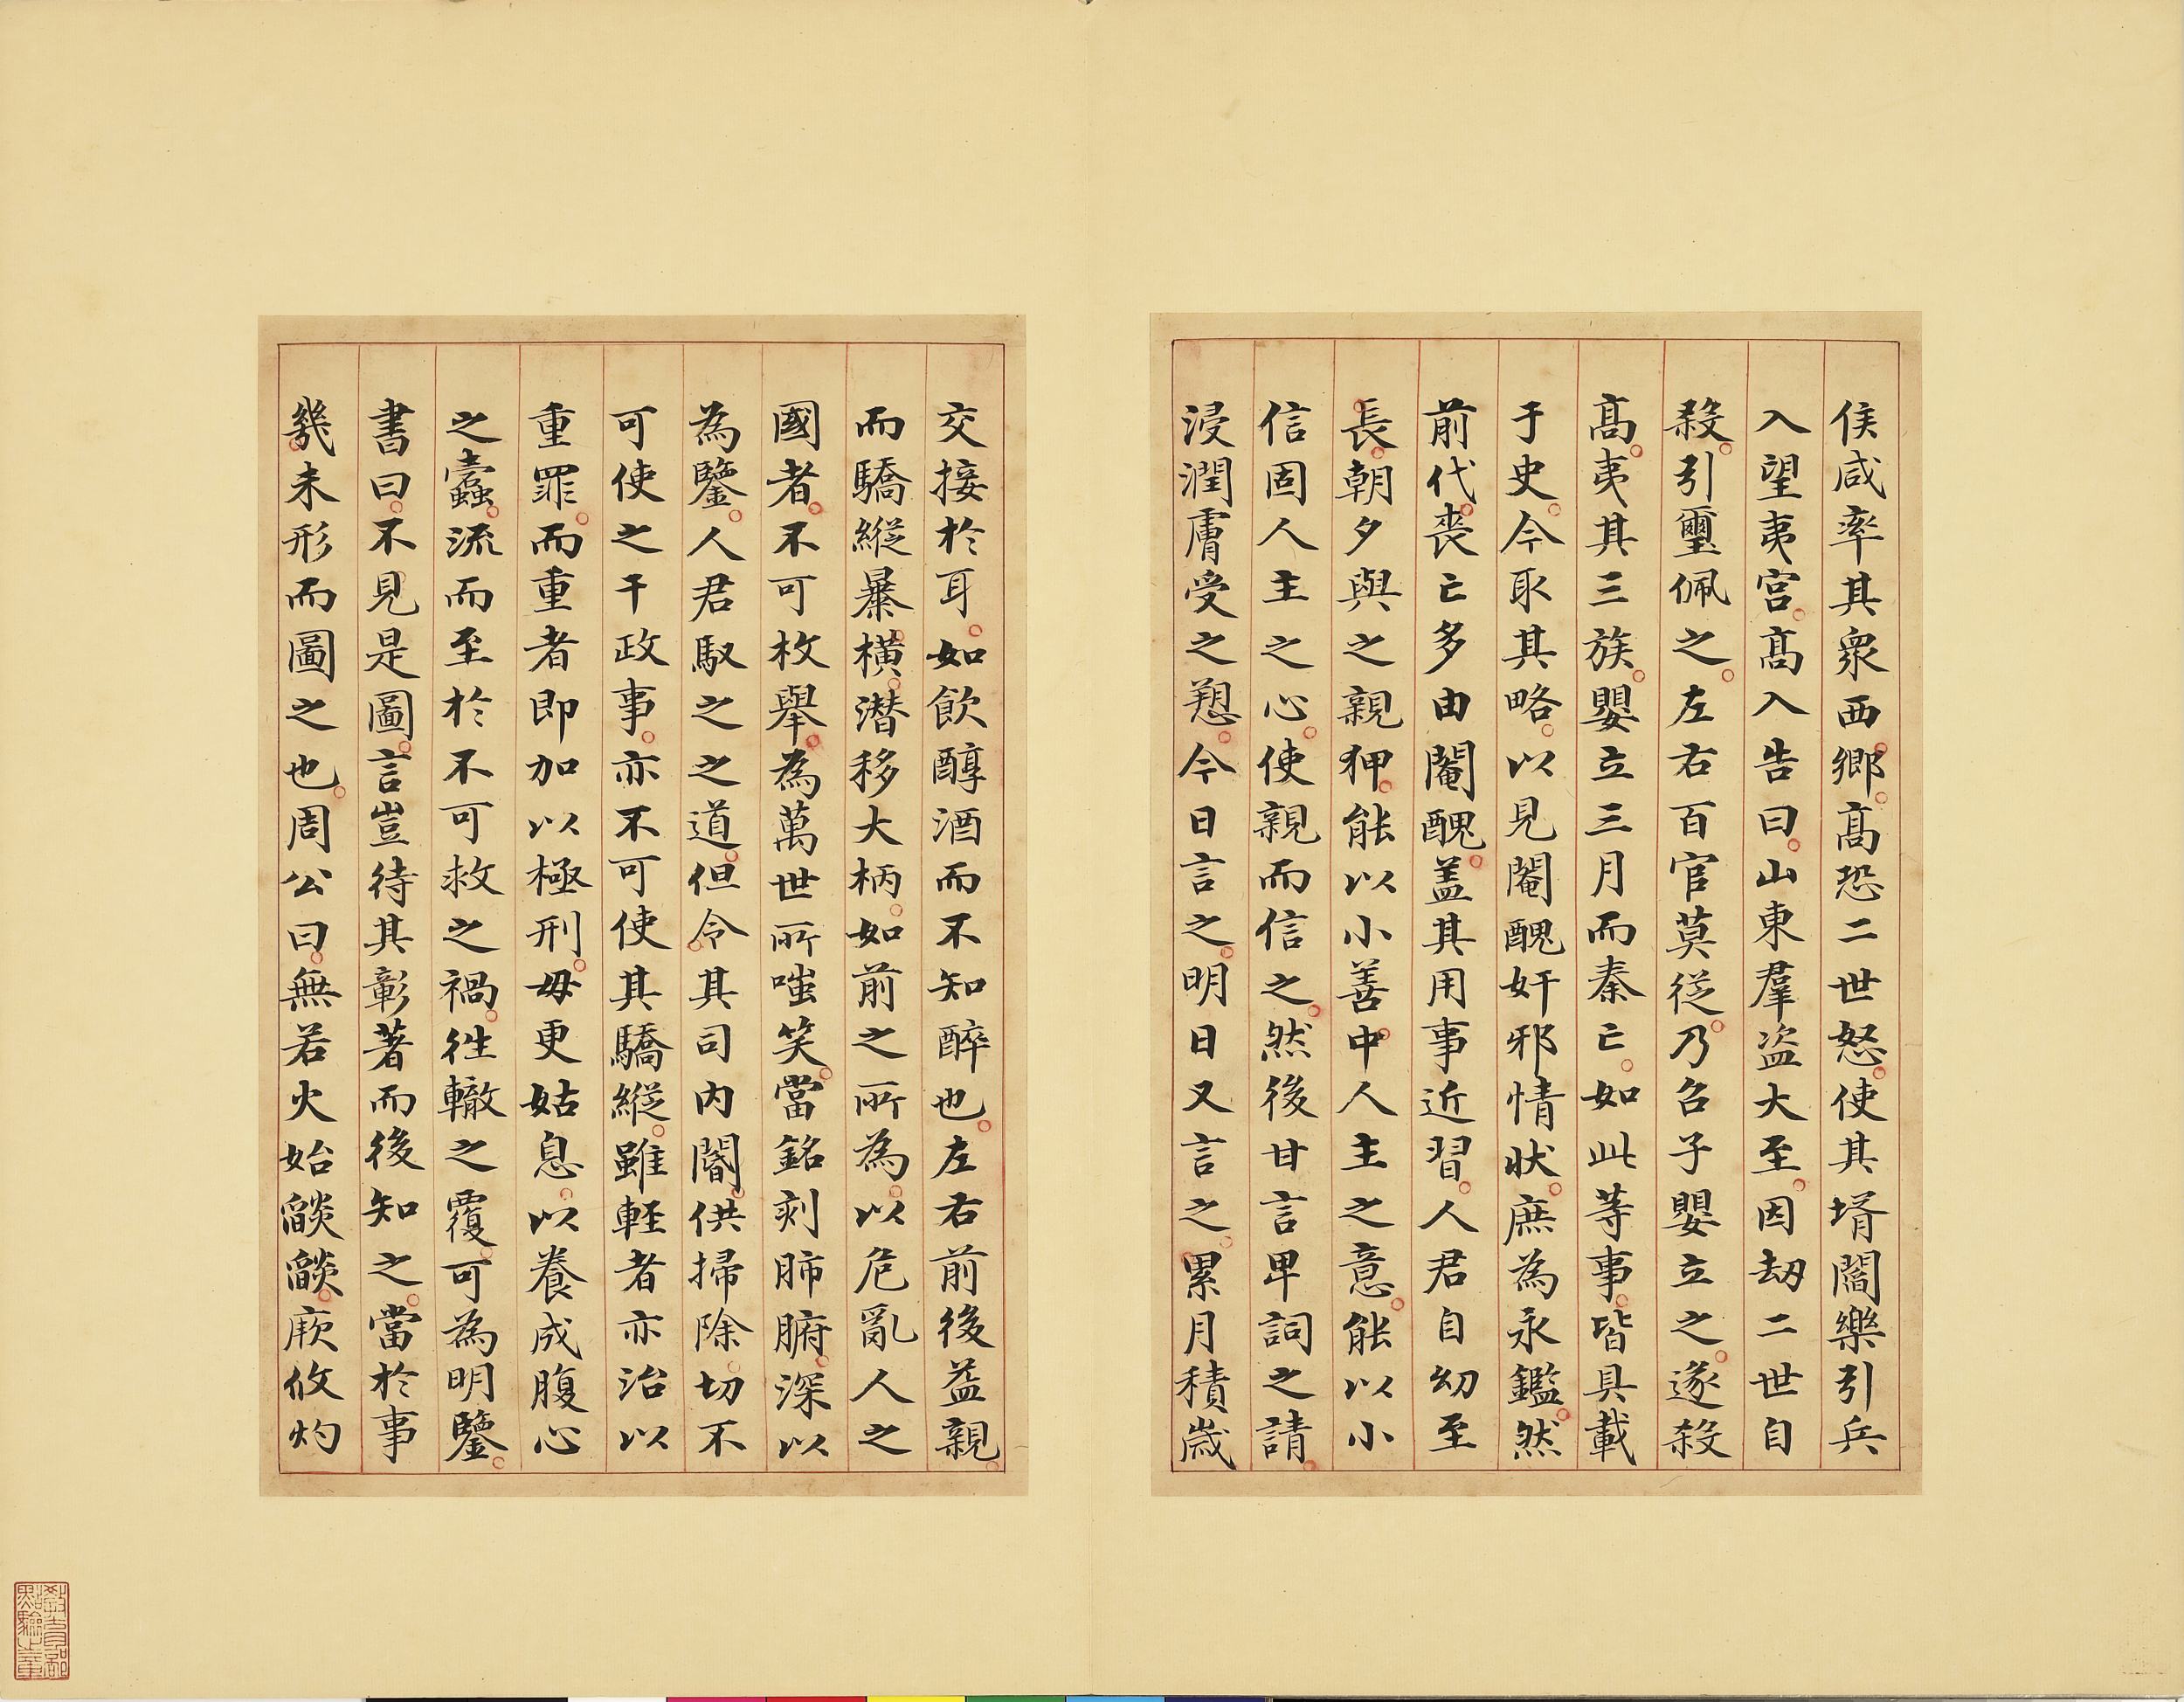 侯咸率其衆西鄉高恐二世怒使其壻閻樂引兵
入望夷宮高入告曰山東羣盗大至因刼二世自
殺引璽佩之左右百官莫從乃召子嬰立之遂殺
髙夷其三族嬰立三月而秦亡如此等事皆具載
于史今取其略以見閹醜奸邪情狀庶為永鑑然
前代喪亡多由閹醜盖其用事近習人君自幼至
長朝夕與之親狎能以小善中人主之意能以小
信固人主之心使親而信之然後甘言卑詞之請
浸潤膚受之愬今日言之明日又言之累月積歲
交接於耳如飲醇酒而不知醉也左右前後益親
而驕縱暴橫潜移大柄如前之所為以危亂人之
國者不可枚舉為萬世所嗤笑當銘刻肺腑深以
為鑒人君馭之之道但令其司内閽供掃除切不
可使之干政事亦不可使其驕縱雖軽者亦治以
重罪而重者即加以極刑毋更姑息以養成腹心
之蠹流而至於不可救之禍徃轍之覆可為明鑒
書曰不見是圖言豈待其彰著而後知之當於事
幾未形而圖之也周公曰無若火始燄燄厥攸灼
教育部
點驗之章